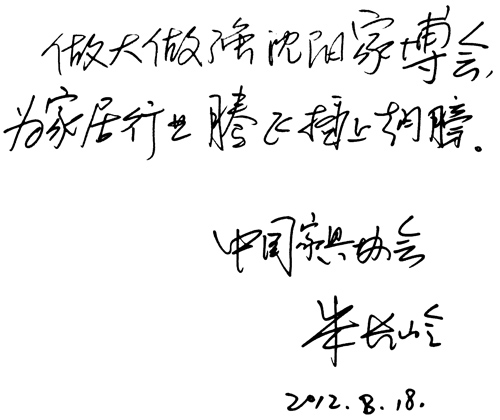 做大做强沈阳家博会,
为家居行业腾飞插上翅膀.
中国家具协会
朱长岭
2012.8.18.